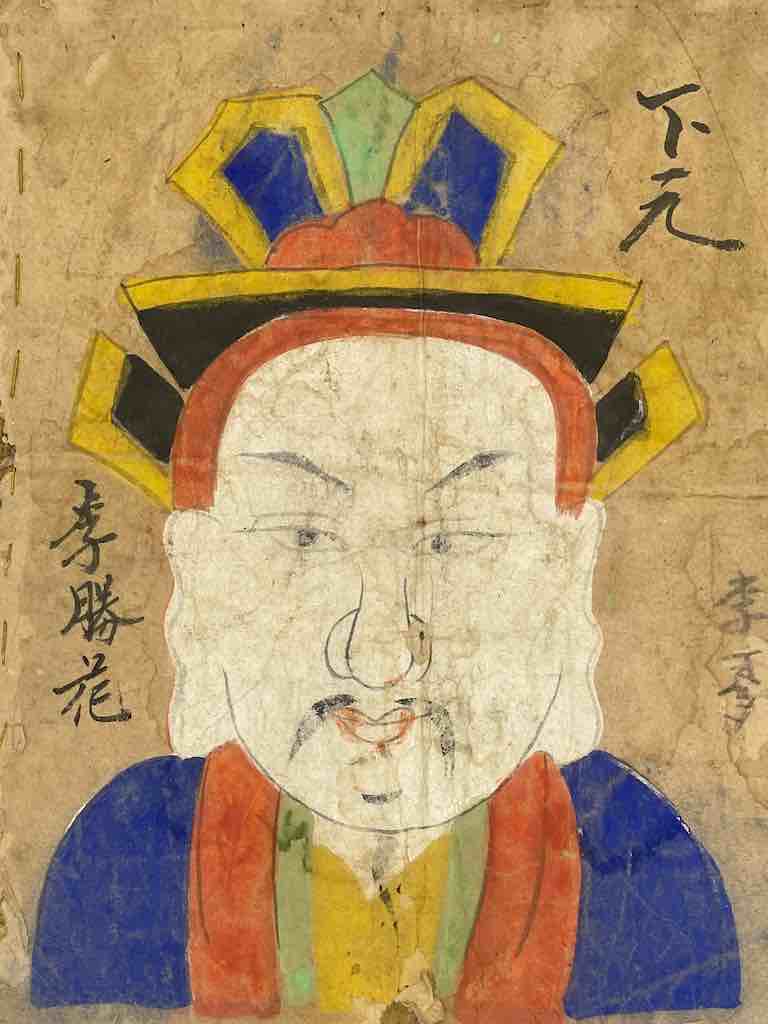 下元
李勝花